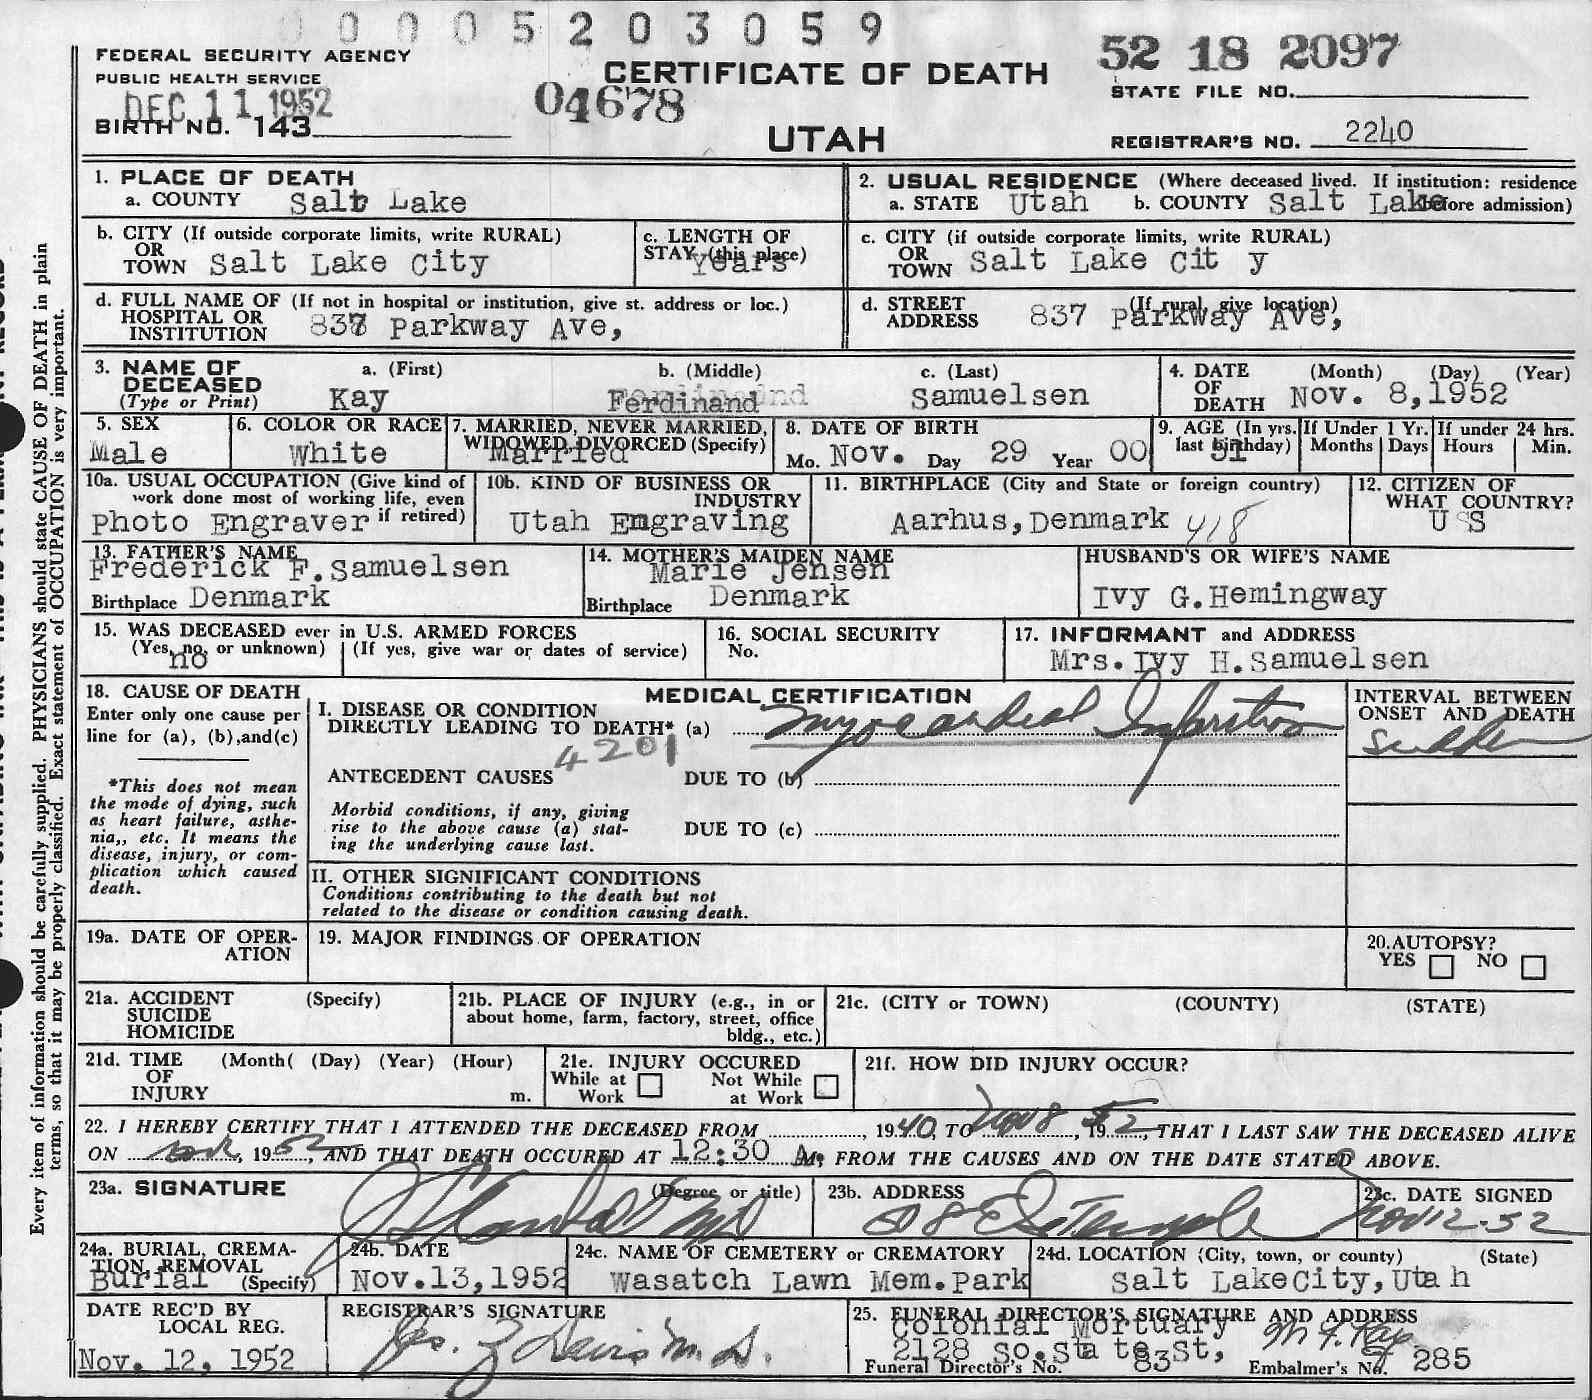 0 0 0 5 2 0 3 0 5 9
FEDERAL SECURITY AGENCY
PUBLIC HEALTH SERVICE
DEC 11 1952
BIRTH NO. 143
CERTIFICATE OF DEATH
04678
UTAH
52 18 2097
STATE FILE NO.
REGISTRAR'S NO. 2240
1. PLACE OF DEATH
a. COUNTY Salt Lake
2. USUAL RESIDENCE (Where deceased lived. If institution: residence before admission)
a. STATE Utah b. COUNTY Salt Lake
b. CITY (If outside corporate limits, write RURAL)
OR
TOWN Salt Lake City
c. LENGTH OF
STAY (this place)
Years
c. CITY (if outside corporate limits, write RURAL)
OR
TOWN Salt Lake Cit y
d. FULL NAME OF (If not in hospital or institution, give st. address or loc.)
HOSPITAL OR
INSTITUTION 837 Parkway Ave,
d. STREET (If rural, give location)
ADDRESS 837 Parkway Ave,
3. NAME OF a. (First) b. (Middle) c. (Last)
DECEASED
(Type or Print) Kay Ferdinand Samuelsen
4. DATE (Month) (Day) (Year)
OF
DEATH Nov. 8,1952
5. SEX
Male
6. COLOR OR RACE
White
7. MARRIED, NEVER MARRIED,
WIDOWED, DIVORCED (Specify)
Married
8. DATE OF BIRTH
Mo. Nov. Day 29 Year 00
9. AGE (In yrs. last birthday)
51
If Under 1 Yr.
Months Days
If under 24 hrs.
Hours Min.
10a. USUAL OCCUPATION (Give kind of
work done most of working life, even
if retired)
Photo Engraver
10b. KIND OF BUSINESS OR
INDUSTRY
Utah Engraving
11. BIRTHPLACE (City and State or foreign country)
Aarhus,Denmark 418
12. CITIZEN OF
WHAT COUNTRY?
U S
13. FATHER'S NAME
Frederick F.Samuelsen
Birthplace Denmark
14. MOTHER'S MAIDEN NAME
Marie Jensen
Birthplace Denmark
HUSBAND'S OR WIFE'S NAME
Ivy G.Hemingway
15. WAS DECEASED ever in U.S. ARMED FORCES
(Yes, no, or unknown) (If yes, give war or dates of service)
no
16. SOCIAL SECURITY
No.
17. INFORMANT and ADDRESS
Mrs.Ivy H.Samuelsen
18. CAUSE OF DEATH
Enter only one cause per
line for (a), (b),and(c)
*This does not mean
the mode of dying, such
as heart failure, asthe-
nia,, etc. It means the
disease, injury, or com-
plication which caused
death.
MEDICAL CERTIFICATION
I. DISEASE OR CONDITION
DIRECTLY LEADING TO DEATH* (a) Myocardial Infarction
4201
ANTECEDENT CAUSES DUE TO (b)
Morbid conditions, if any, giving
rise to the above cause (a) stat-
ing the underlying cause last.
DUE TO (c)
INTERVAL BETWEEN
ONSET AND DEATH
Sudden
II. OTHER SIGNIFICANT CONDITIONS
Conditions contributing to the death but not
related to the disease or condition causing death.
19a. DATE OF OPER-
ATION
19. MAJOR FINDINGS OF OPERATION
20.AUTOPSY?
YES NO
21a. ACCIDENT (Specify)
SUICIDE
HOMICIDE
21b. PLACE OF INJURY (e.g., in or
about home, farm, factory, street, office
bldg., etc.)
21c. (CITY or TOWN) (COUNTY) (STATE)
21d. TIME (Month( (Day) (Year) (Hour)
OF
INJURY m.
21e. INJURY OCCURED
While at Work Not While at Work
21f. HOW DID INJURY OCCUR?
22. I HEREBY CERTIFY THAT I ATTENDED THE DECEASED FROM , 1940, TO Nov 8, 1952, THAT I LAST SAW THE DECEASED ALIVE
ON , 1952, AND THAT DEATH OCCURED AT 12:30 A M, FROM THE CAUSES AND ON THE DATE STATED ABOVE.
23a. SIGNATURE (Degree or title)
MD
23b. ADDRESS
508 E So Temple
23c. DATE SIGNED
Nov 12-52
24a. BURIAL, CREMA-
TION, REMOVAL
(Specify)
Burial
24b. DATE
Nov.13,1952
24c. NAME OF CEMETERY or CREMATORY
Wasatch Lawn Mem.Park
24d. LOCATION (City, town, or county) (State)
Salt LakeCity,Utah
DATE REC'D BY
LOCAL REG.
Nov. 12, 1952
REGISTRAR'S SIGNATURE
Davis M.D.
25. FUNERAL DIRECTOR'S SIGNATURE AND ADDRESS
Colonial Mortuary
2128 So.State St,
Funeral Director's No. 83 Embalmer's No. 285
Every item of information should be carefully supplied. PHYSICIANS should state CAUSE OF DEATH in plain
terms, so that it may be properly classified. Exact statement of OCCUPATION is very important.